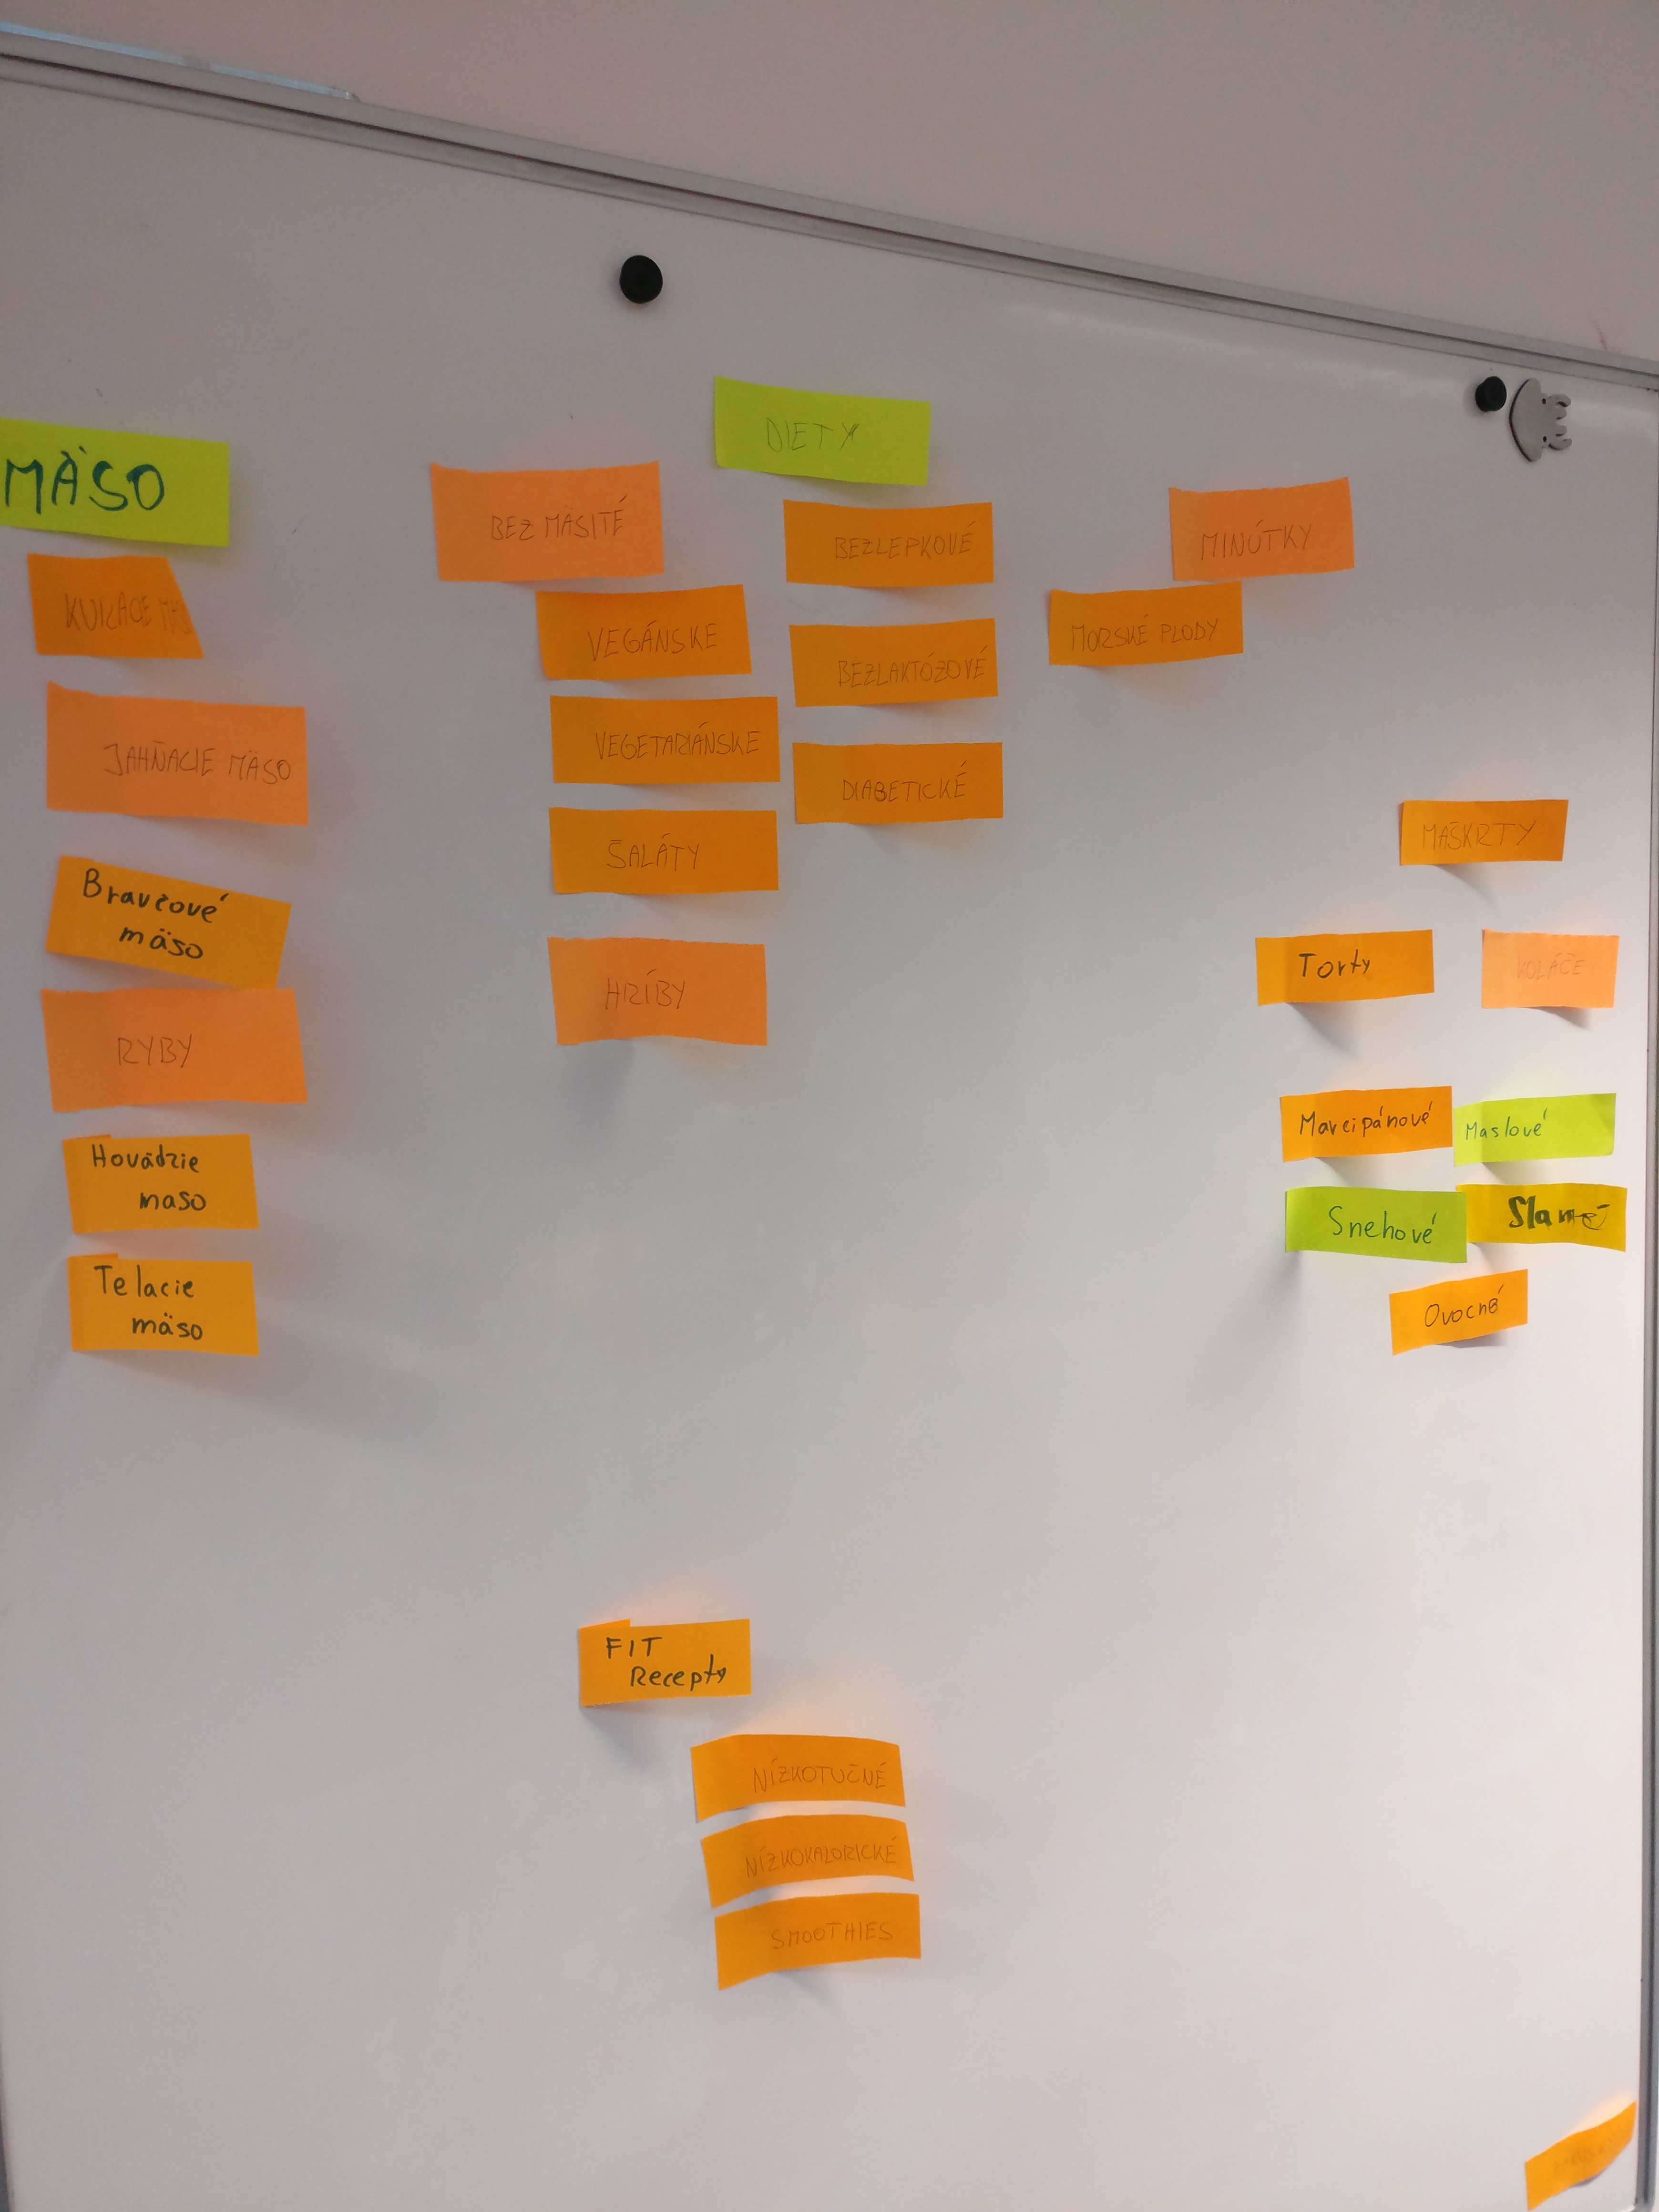 MÄSO
KURACIE
JAHŇACIE MÄSO
Bravčové
mäso
RYBY
Hovädzie
maso
Telacie
mäso
DIETY
BEZ MÄSITÉ
VEGÁNSKE
VEGETARIÁNSKE
ŠALÁTY
HRÍBY
BEZLEPKOVÉ
BEZLAKTÓZOVÉ
DIABETICKÉ
MINÚTKY
MORSKÉ PLODY
MAŠKRTY
Torty
KOLÁČE
Marcipánové
Maslové
Snehové
Slané
Ovocné
FIT
Recepty
NÍZKOTUČNÉ
NÍZKOKALORICKÉ
SMOOTHIES